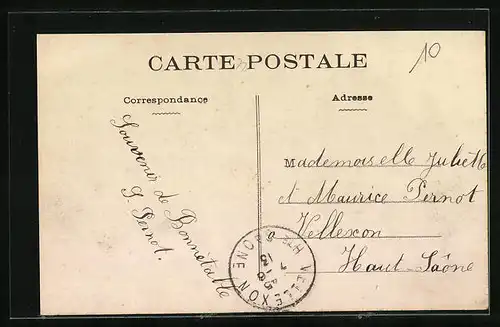 10
CARTE POSTALE
Correspondance
Adresse
Souvenir de Bonnetable
G. Pernot.
Mademoiselle Juliette
et Maurice Pernot
à Vellexon
Haute Saône
VELLEXON
Hte SAONE